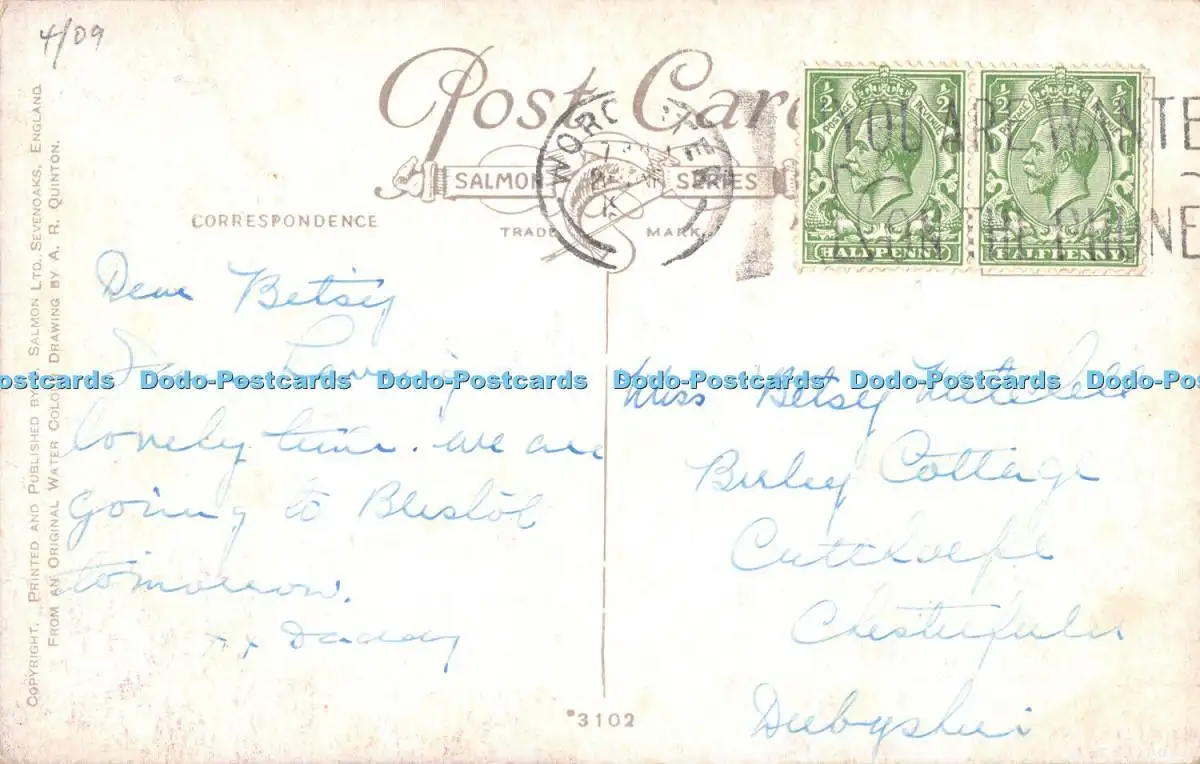 4/09
Post Card
SALMON SERIES
TRADE MARK
CORRESPONDENCE
WORCESTER
YOU ARE WANTE
ON THE PHONE
½ ½
POSTAGE REVENUE
HALFPENNY
½ ½
POSTAGE REVENUE
HALFPENNY
COPYRIGHT. PRINTED AND PUBLISHED BY J. SALMON LTD., SEVENOAKS, ENGLAND.
FROM AN ORIGINAL WATER COLOUR DRAWING BY A. R. QUINTON.
Dear Betsy
lovely time. We are
going to Bristol
tomorrow.
x x Daddy
Miss Betsy Mitchell
Cottage
Cutthorpe
Chesterfield
Derbyshire
*3102
ostcards Dodo-Postcards Dodo-Postcards Dodo-Postcards Dodo-Postcards Dodo-Postcards Dodo-Pos